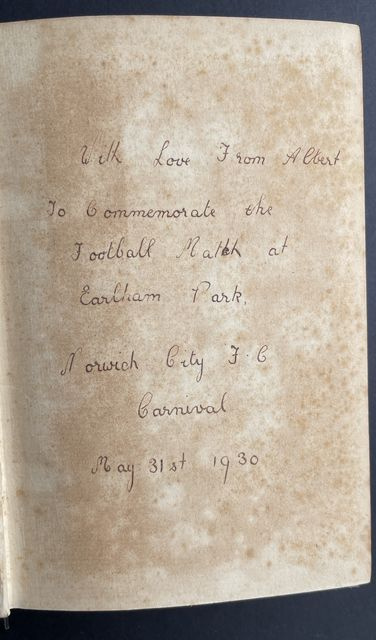 With Love From Albert
To Commemorate the
Football Match at
Earlham Park,
Norwich City F.C
Carnival
May 31st 1930